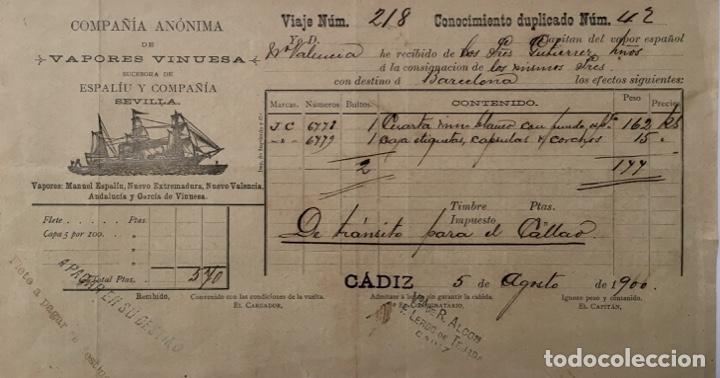 COMPAÑÍA ANÓNIMA
DE
VAPORES VINUESA
SUCESORA DE
ESPALÍU Y COMPAÑÍA
SEVILLA.
Vapores: Manuel Espalíu, Nuevo Extremadura, Nuevo Valencia,
Andalucía y García de Vinuesa.
Flete . . . . . Ptas.
Capa 5 por 100. . .
Total Ptas. 570
Viaje Núm. 218 Conocimiento duplicado Núm. 42
Yo D. Capitan del vapor español
Nº Valencia he recibido de los Sres Gutierrez Hños
á la consignacion de los mismos Sres
con destino á Barcelona los efectos siguientes:
Marcas. Números Bultos. CONTENIDO. Peso Precio
JC 6778 1 Cuarta vino blanco con fundo 162 Ks
" 6779 1 Caja etiquetas, capsulas y corchos 15 "
2 177
Timbre Ptas.
Impuesto
De tránsito para el Callao
CÁDIZ 5 de Agosto de 1900.
Recibido, Convenido con las condiciones de la vuelta. Admitase á bordo sin garantir la cabida. Ignoro peso y contenido.
EL CARGADOR, EL CONSIGNATARIO, EL CAPITÁN,
A PAGAR EN SU DESTINO
Flete a pagar
R. ALCON
LERDO DE TEJADA
CADIZ
todocoleccion
todocoleccion.net